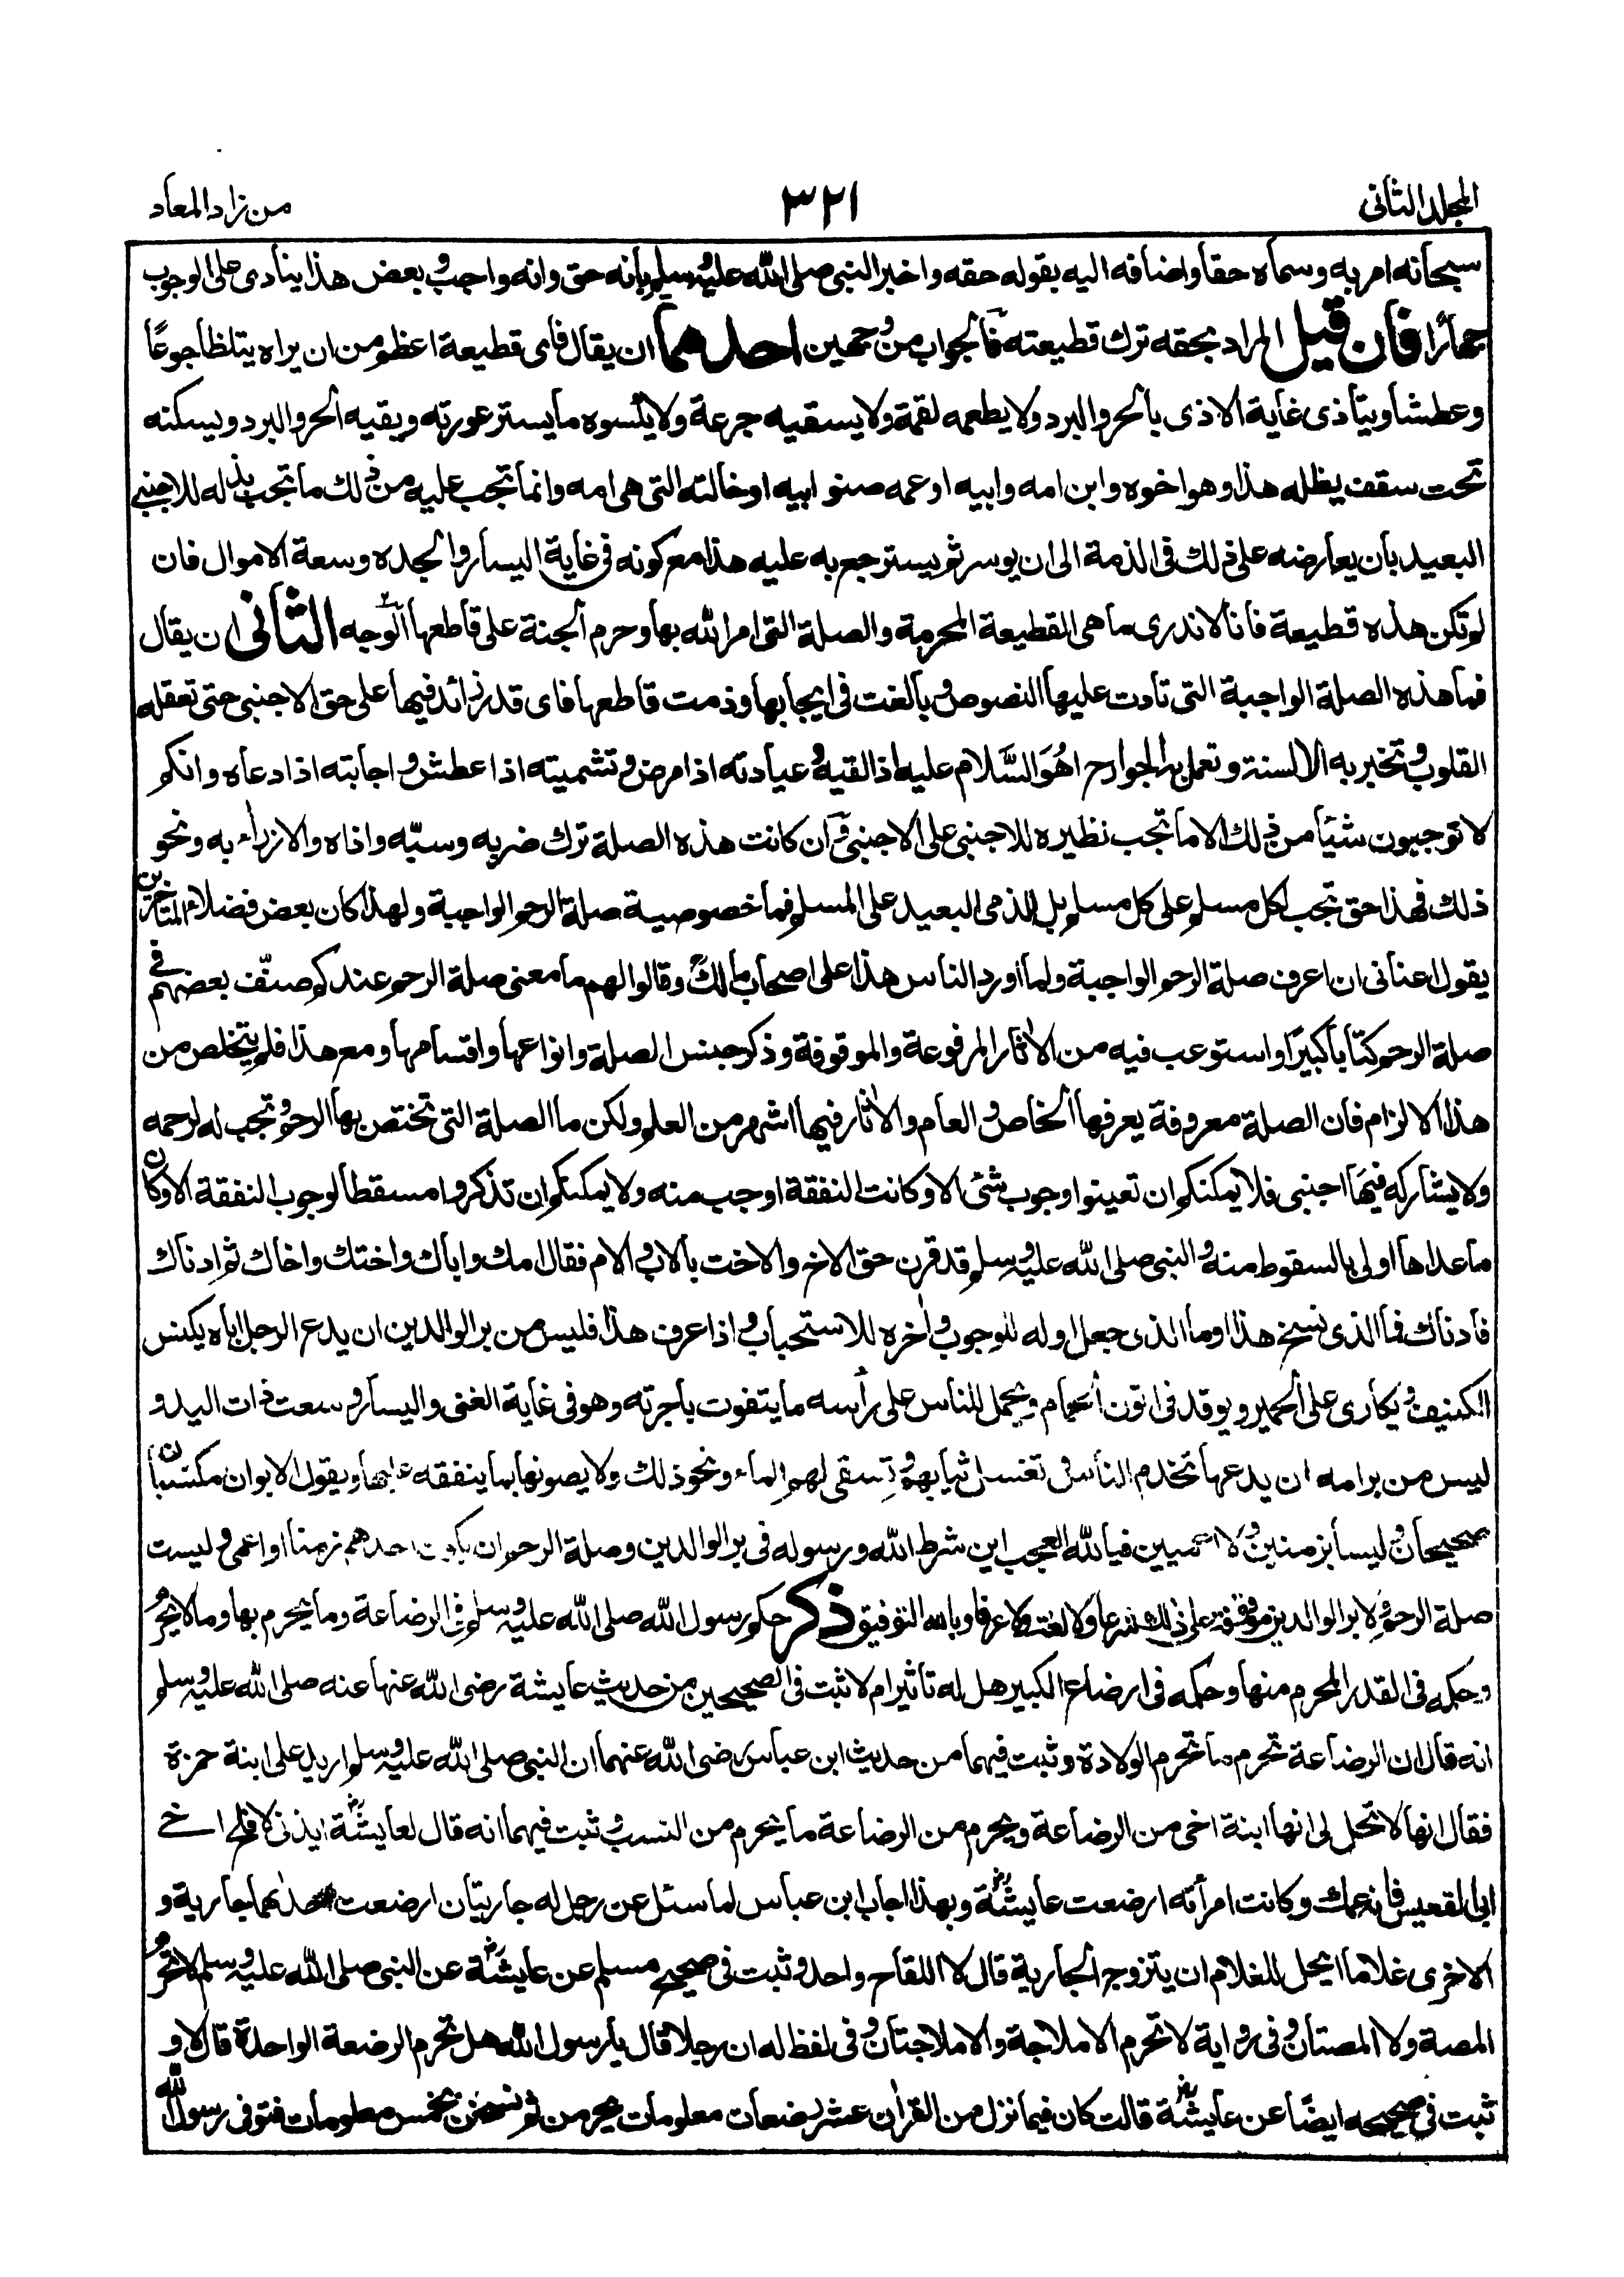 المجلد الثانى
٣٢١
من زاد المعاد
سبحانه امر به وسماه حقا واضافه اليه بقوله حقه واخبر النبى صلى الله عليه وسلم بأنه حق وانه واجب وبعض هذا ينادى على الوجوب
جهارًا فان قيل المراد بحقه ترك قطيعته فالجواب من وجهين احدهما ان يقال فاى قطيعة اعظم من ان يراه يتلظا جوعًا
وعطشا ويتأذى غاية الاذى بالحر والبرد ولا يطعمه لقمة ولا يسقيه جرعة ولا يكسوه ما يستر عورته ويقيه الحر والبرد ويسكنه
تحت سقف يظله هذا وهو اخوه وابن امه وابيه او عمه صنو ابيه او خالته التى هى امه وانما تجب عليه من ذلك ما تجب بذله للاجنبى
البعيد بان يعارضه على ذلك فى الذمة الى ان يوسر ثم يسترجع به عليه هذا مع كونه فى غاية اليسار والجده وسعة الاموال فان
لم تكن هذه قطيعة فانا لا ندرى ما هى القطيعة المحرمة والصلة التى امر الله بها وحرم الجنة على قاطعها الوجه الثانى ان يقال
فما هذه الصلة الواجبة التى نادت عليها النصوص وبالغت فى ايجابها وذمت قاطعها فاى قدر زائد فيها على حق الاجنبى حتى تعقله
القلوب وتخبر به الالسنة وتعمل به الجوارح اهُوَ السَّلام عليه اذا لقيه وعيادته اذا مرض وتشميته اذا عطش واجابته اذا دعاه وانكم
لا توجبون شيًا من ذلك الا ما تجب نظيره للاجنبى على الاجنبى وان كانت هذه الصلة ترك ضربه وسبّه واذاه والازراء به ونحو
ذلك فهذا حق تجب لكل مسلم على كل مسلم بل للذمى البعيد على المسلم فما خصوصية صلة الرحم الواجبة ولهذا كان بعض فضلاء المتاخرين
يقول اعنانى ان اعرف صلة الرحم الواجبة ولما اورد الناس هذا على اصحاب مالك وقالوا لهم ما معنى صلة الرحم عندكم صنّف بعضهم فى
صلة الرحم كتابا كبيرًا واستوعب فيه من الاثار المرفوعة والموقوفة وذكر جنس الصلة وانواعها واقسامها ومع هذا فلم يتخلص من
هذا الالزام فان الصلة معروفة يعرفها الخاص والعام والاثار فيها اشهر من العلم ولكن ما الصلة التى تختص بها الرحم وتجب له لرحمه
ولا يشاركه فيهَا اجنبى فلا يمكنكم ان تعينوا وجوب شئ الا وكانت النفقة اوجب منه ولا يمكنكم ان تذكروا مسقطا لوجوب النفقة الا وكان
ما عداها اولى بالسقوط منه والنبى صلى الله عليه وسلم قد قرن حق الاخ والاخت بالاب والام فقال امك واباك واختك واخاك ثم ادناك
فادناك فما الذى نسخ هذا وما الذى جعل اوله للوجوب واخره للاستحباب واذا عرف هذا فليس من بر الوالدين ان يدع الرجل اباه يكنس
الكنيف ويكارى على الحمير ويوقد فى اتون الحمام ويحمل للناس على رأسه ما يتفوت باجرته وهو فى غاية الغنى واليسار وسعت ذات اليد و
ليس من بر امه ان يدعها تخدم الناس وتغسل ثيابهم وتسقى لهم الماء ونحو ذلك ولا يصونها بما ينفقه عليها ويقول الابوان مكتسبان
صحيحان وليسا بزمنين ولا اعميين فيا لله العجب اين شرط الله ورسوله فى بر الوالدين وصلة الرحم ان يكون احدهم زمنا او اعمى وليست
صلة الرحم ولا بر الوالدين موقوفة على ذلك شرعا ولا لغة ولا عرفا وبالله التوفيق ذكر حكم رسول الله صلى الله عليه وسلم فى الرضاعة وما يحرم بها وما لا يحرم
وحكمه فى القدر المحرم منها وحكمه فى ارضاع الكبير هل له تأثير ام لا ثبت فى الصحيحين من حديث عايشة رضى الله عنها عنه صلى الله عليه وسلم
انه قال ان الرضاعة تحرم ما تحرم الولادة وثبت فيهما من حديث ابن عباس رضى الله عنهما ان النبى صلى الله عليه وسلم اريد على ابنة حمزة
فقال انها لا تحل لى انها ابنة اخى من الرضاعة ويحرم من الرضاعة ما يحرم من النسب وثبت فيهما انه قال لعايشة ايذنى لافلح اخى
ابى القعيس فانه عمك وكانت امرأته ارضعت عايشة وبهذا اجاب ابن عباس لما سئل عن رجل له جاريتان ارضعت احداهما جارية و
الاخرى غلاما ايحل للغلام ان يتزوج الجارية قال لا اللقاح واحد وثبت فى صحيح مسلم عن عايشة عن النبى صلى الله عليه وسلم لا تحرم
المصة ولا المصتان وفى رواية لا تحرم الاملاجة والاملاجتان وفى لفظ له ان رجلا قال يا رسول الله هل تحرم الرضعة الواحدة قال لا و
ثبت فى صحيحه ايضًا عن عايشة قالت كان فيما نزل من القران عشر رضعات معلومات يحرمن ثم نسخن بخمس معلومات فتوفى رسول الله